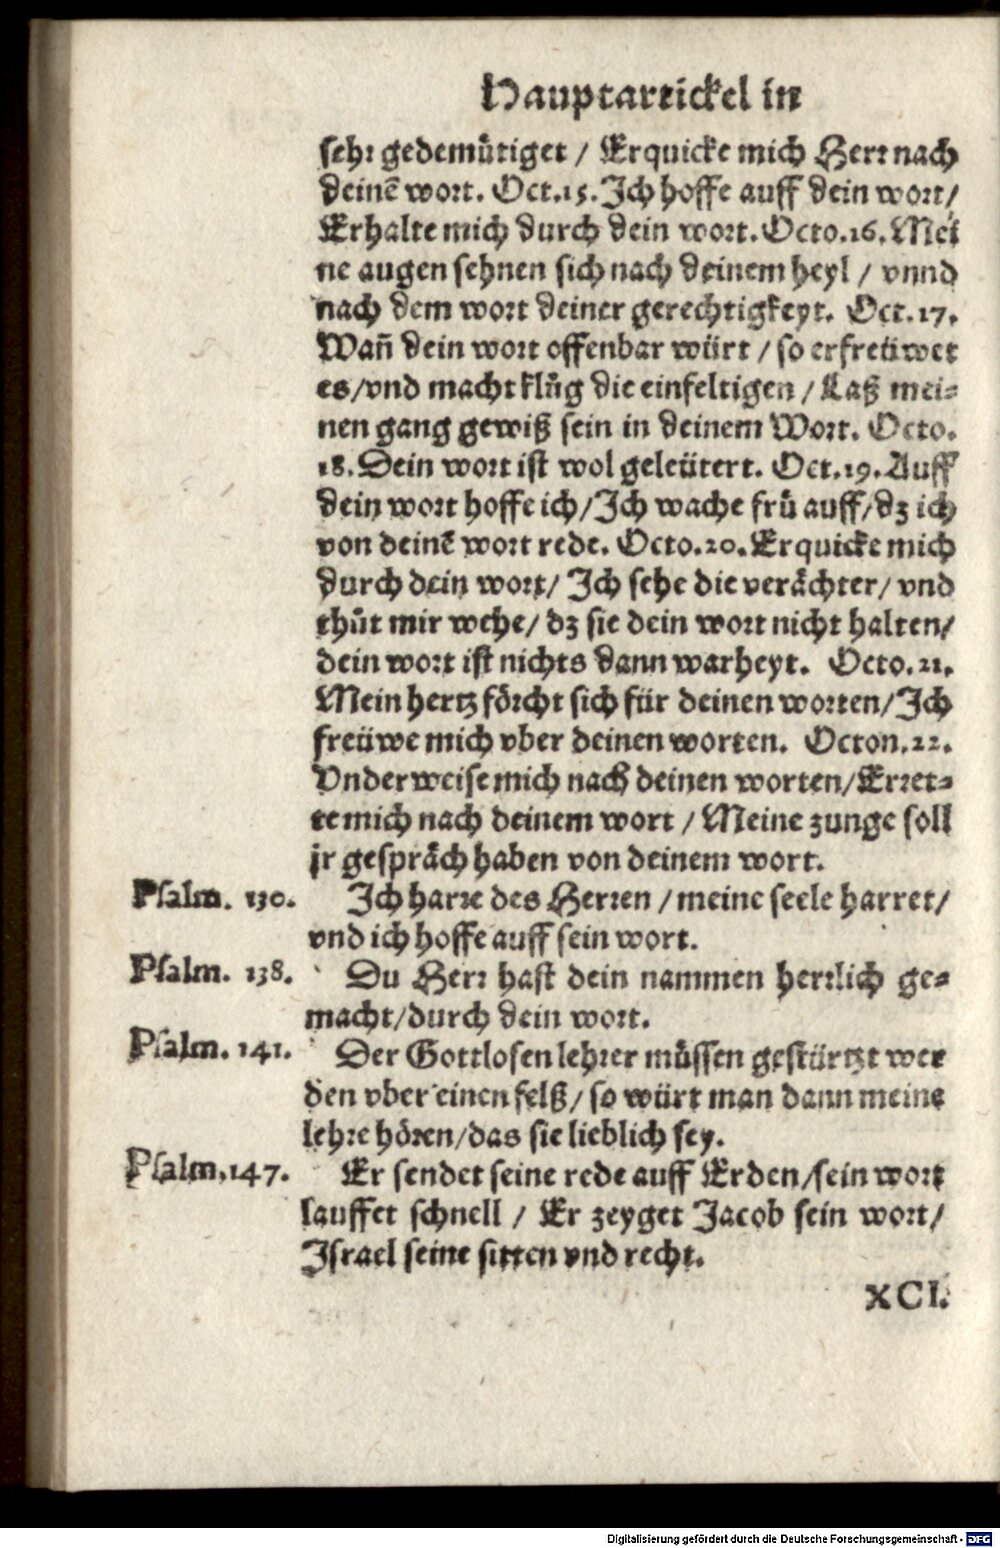 Hauptartickel in
sehr gedemütiget / Erquicke mich Herr nach
deinē wort. Oct.15. Ich hoffe auff dein wort/
Erhalte mich durch dein wort. Octo.16. Mei
ne augen sehnen sich nach deinem heyl / vnnd
nach dem wort deiner gerechtigkeyt. Oct.17.
Wañ dein wort offenbar würt / so erfreüwet
es/vnd macht klůg die einfeltigen / Laß mei-
nen gang gewiß sein in deinem Wort. Octo.
18. Dein wort ist wol geleütert. Oct.19. Auff
dein wort hoffe ich/Ich wache frů auff/dz ich
von deinē wort rede. Octo.20. Erquicke mich
durch dein wort/ Ich sehe die verächter/ vnd
thůt mir wehe/ dz sie dein wort nicht halten/
dein wort ist nichts dann warheyt. Octo.21.
Mein hertz förcht sich für deinen worten/Ich
freüwe mich vber deinen worten. Octon.22.
Vnderweise mich nach deinen worten/Erret-
te mich nach deinem wort / Meine zunge soll
jr gespräch haben von deinem wort.
Psalm. 130. Ich harre des Herren / meine seele harret/
vnd ich hoffe auff sein wort.
Psalm. 138. Du Herr hast dein nammen herrlich ge-
macht/durch dein wort.
Psalm. 141. Der Gottlosen lehrer müssen gestürtzt wer
den vber einen felß/ so würt man dann meine
lehre hören/das sie lieblich sey.
Psalm.147. Er sendet seine rede auff Erden/sein wort
lauffet schnell / Er zeyget Jacob sein wort/
Israel seine sitten vnd recht.
XCI.
Digitalisierung gefördert durch die Deutsche Forschungsgemeinschaft - DFG